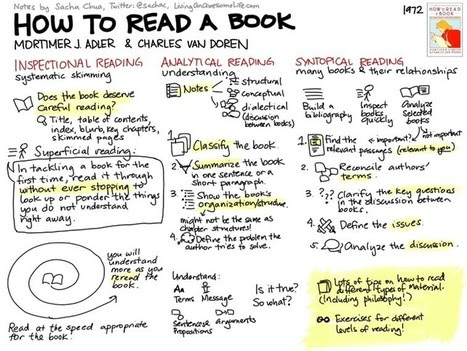 Notes by Sacha Chua, Twitter: @sachac, LivingAnAwesomeLife.com
HOW TO READ A BOOK
MORTIMER J. ADLER & CHARLES VAN DOREN
1972
HOW TO READ
A BOOK
INSPECTIONAL READING
systematic skimming
Does the book deserve
careful reading?
Title, table of contents,
index, blurb, key chapters,
skimmed pages
Superficial reading:
In tackling a book for the
first time, read it through
without ever stopping to
look up or ponder the things
you do not understand
right away.
you will
understand
more as you
reread the
book.
Read at the speed appropriate
for the book!
ANALYTICAL READING
understanding
Notes
structural
conceptual
dialectical
(discussion
between books)
1. Classify the book.
2. Summarize the book
in one sentence or a
short paragraph.
3. Show the book's
organization/structure.
might not be the same as
chapter structures!
4. Define the problem the
author tries to solve.
Understand:
Aa
Terms
Message
Is it true?
So what?
Sentences &
Propositions
arguments
SYNTOPICAL READING
many books & their relationships
Build a
bibliography
Inspect
books
quickly
Analyze
selected
books
1. Find the
relevant passages
important?
not
important
(relevant to you!)
2. Reconcile authors'
terms.
3. ??? Clarify the key questions
in the discussion between
books.
4. Define the issues.
5. Analyze the discussion.
Lots of tips on how to read
different types of material.
(Including philosophy!)
Exercises for different
levels of reading!